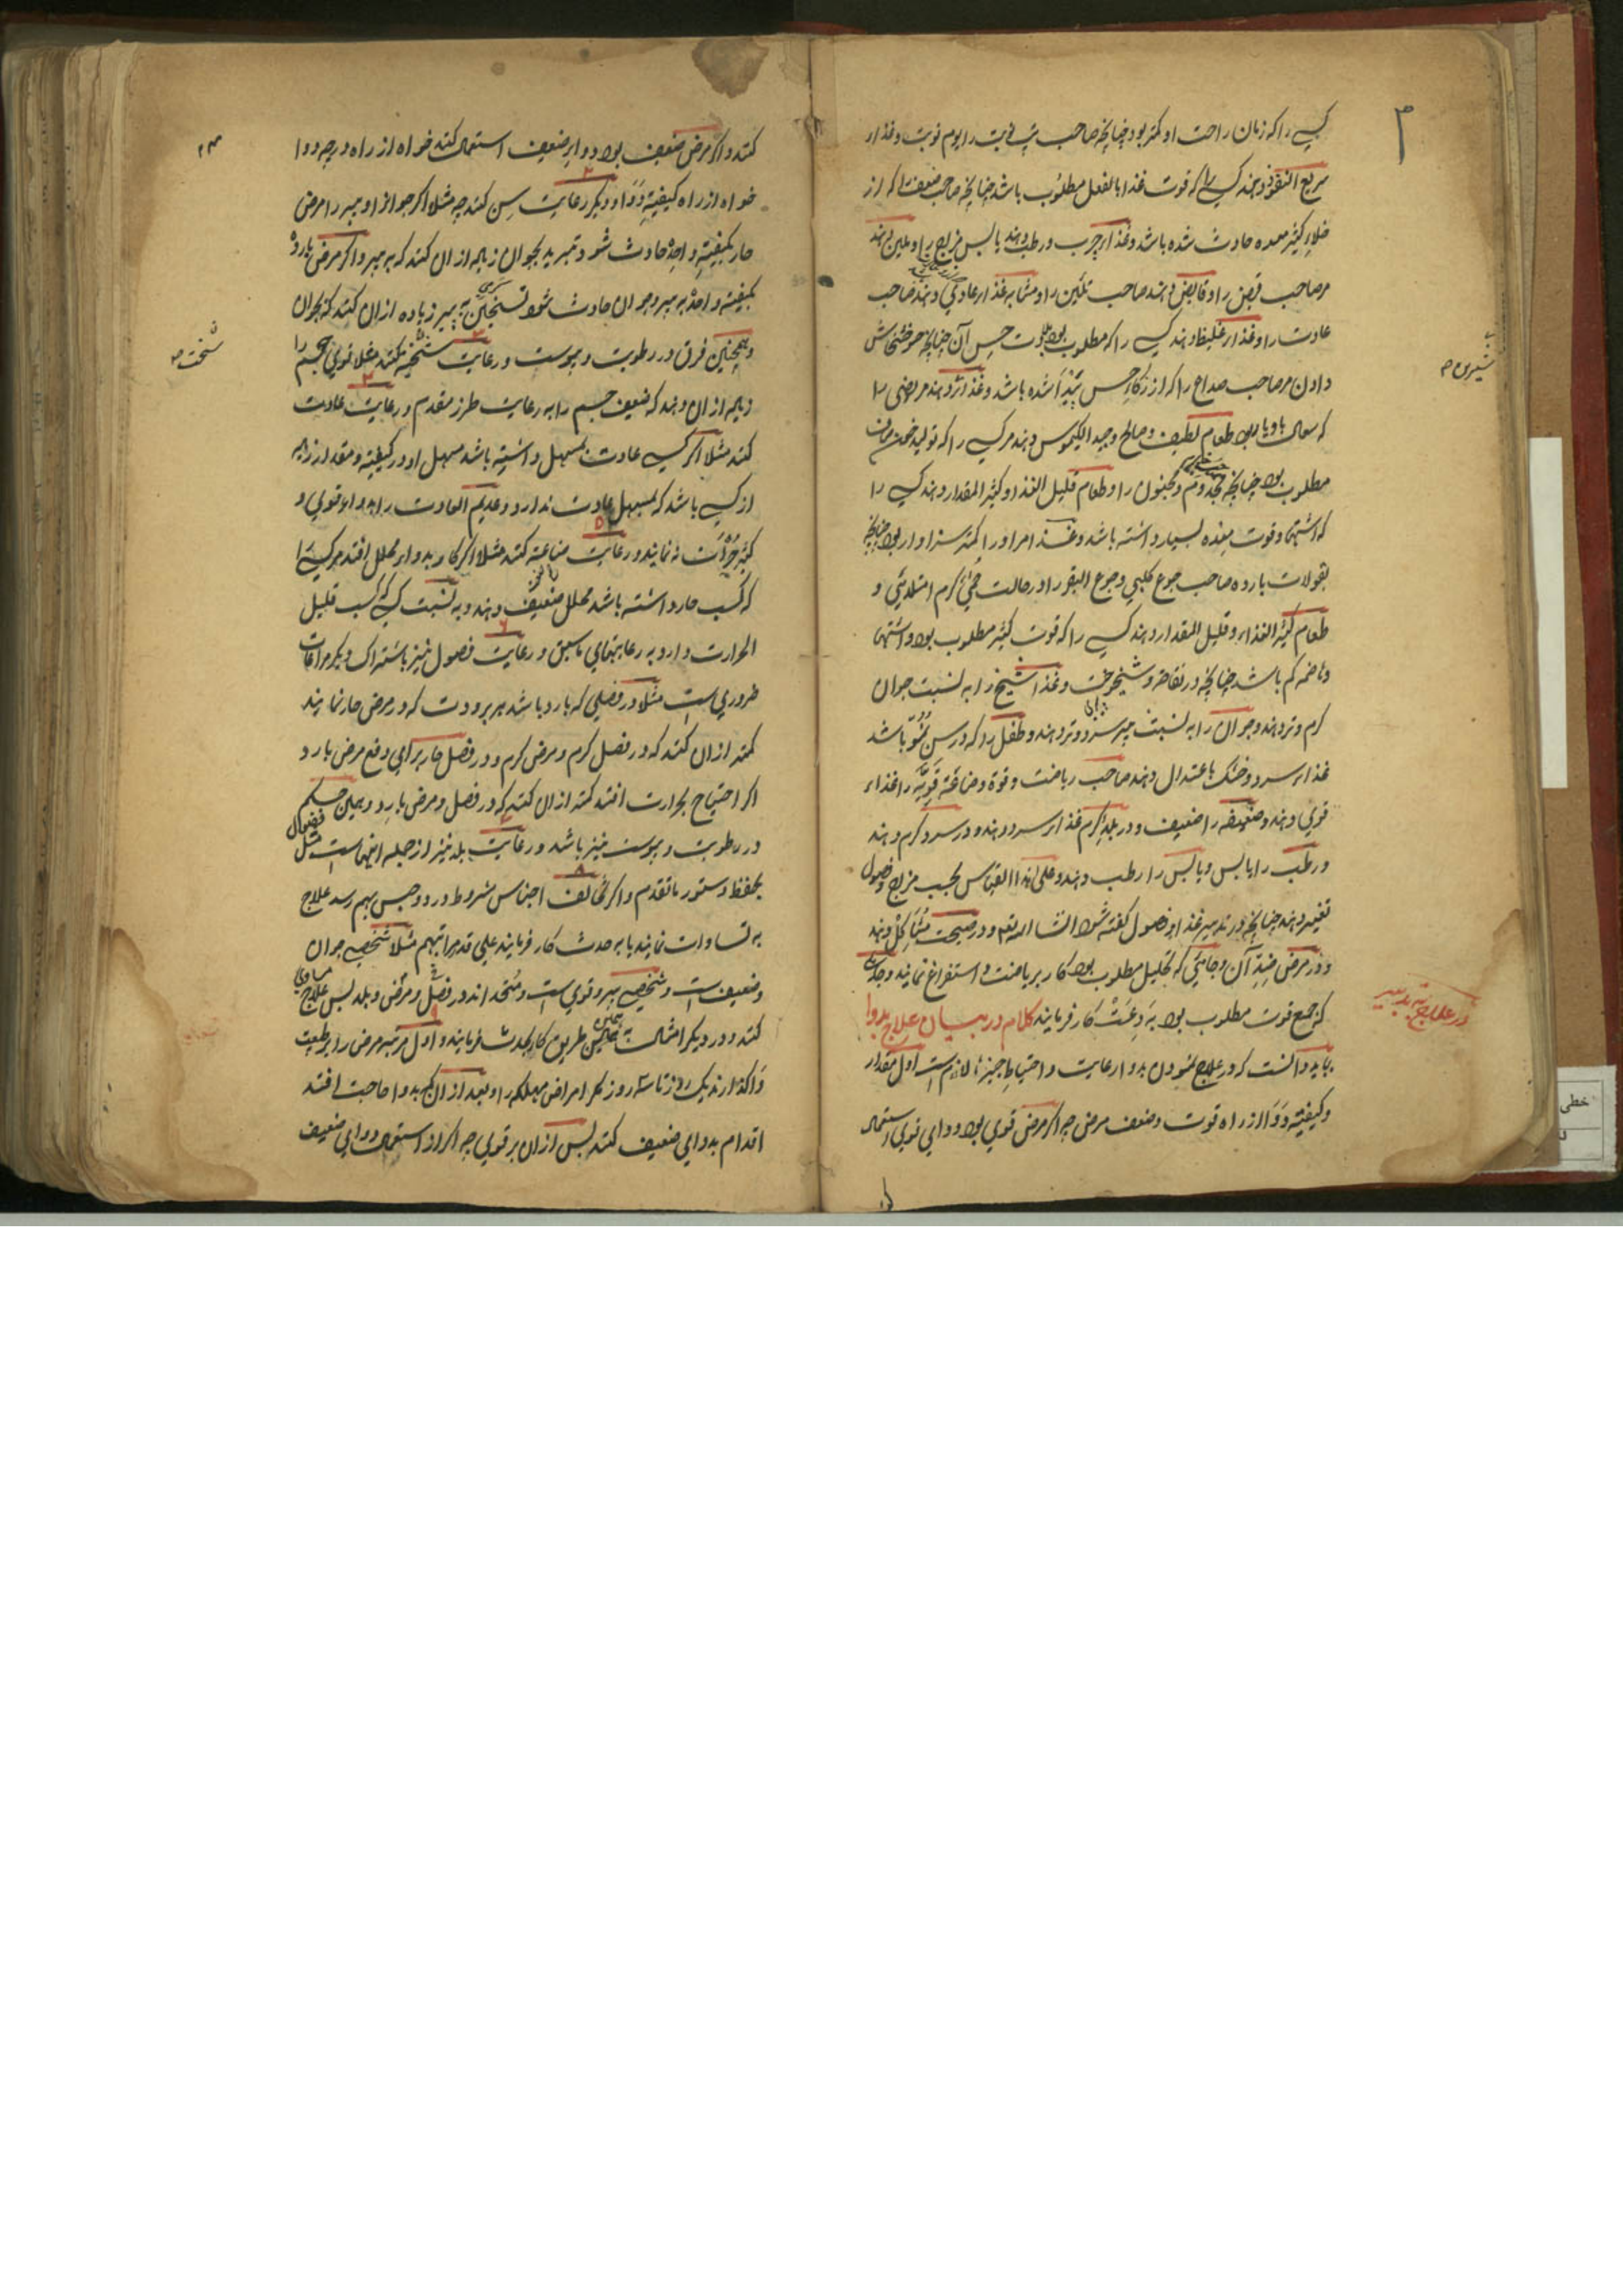 ۳
کسی را که زمان راحت او کمتر بود چنانچه صاحب تپ نوبت را یوم نوبت و غذاء
سریع النفوذ دهند کسی را که قوت غذا بالفعل مطلوب باشد چنانچه صاحب ضعف را که از
خلاء کثیر معده حادث شده باشد و غذاء چرب و رطب دهند یابس مزاج را و ملین دهند
مر صاحب قبض را و قابض دهند صاحب تلئین را و مشابه غذاء عادی دهند صاحب
عادت را و غذاء غلیظ دهند کسی را که مطلوب بود حس آن چنانچه خشخاش
دادن مر صاحب صداع را که از ذکاء حس پیدا شده باشد و غذاء دهند مریضی را
که سعال با و با بود طعام لطیف و صالح و جید الکیموس دهند مر کسی را که تولید خون
مطلوب بود چنانچه مجذوم و مجنون را و طعام قلیل الغذا و کثیر المقدار دهند کسی را
که اشتها و قوت معده بسیار داشته باشد و غذا مر او را کمتر سزاوار بود چنانچه
بقولات بارده صاحب جوع کلبی و جوع البقر را در حالت حمی گرم امتلائی و
طعام کثیر الغذاء و قلیل المقدار دهند کسی را که قوت کثیر مطلوب بود و اشتها
و هاضمه کم باشد چنانچه در نقاهه و شیخوخت و غذا شیخ را به نسبت جوان
گرم و تر دهند و جوان را به نسبت پیر سرد و تر دهند و طفل را که در سن نمو باشد
غذاء سرد و خشک باعتدال دهند صاحب ریاضت و قوة و صناعة قویه را غذاء
قوی دهند و ضعیفه را ضعیف و در بلد گرم غذاء سرد دهند و در سرد گرم دهند
و رطب را یابس و یابس را رطب دهند و علی هذا القیاس بحسب مزاج و فصول
تغییر دهند چنانچه در تدبیر غذاء فصول گفته شود انشا الله تعم و در صحت مشاکل دهند
و در مرض ضد آن و جائیکه تحلیل مطلوب بود کار بریاضت و استفراغ نمایند و جائی
که جمع قوت مطلوب بود به دعت کار فرمایند کلام در بیان علاج بدوا
در علاج به تدبیر
بباید دانست که در علاج نمودن بدوا رعایت و احتیاط چیزها لازم است اول مقدار
و کیفیة دوا از راه قوت و ضعف مرض چه اگر مرض قوی بود دوای قوی استعمال
کنند و اگر مرض ضعیف بود دواء ضعیف استعمال کنند خواه از راه درجه دوا
خواه از راه کیفیة دوا و دیگر رعایت سن کنند چه مثلا اگر جوان و پیر را مرض
حار بکیفیة واحد حادث شود تبرید بجوان زیاده از ان کنند که به پیر و اگر مرض بارد
بکیفیة واحد به پیر و جوان حادث شود تسخین به پیر زیاده از ان کنند که بجوان
و همچنین فرق در رطوبت و یبوست و رعایت سخنه کنند مثلا قوی جسم را
زیاده از ان دهند که ضعیف جسم را به رعایت طرز متقدم و رعایت عادت
کنند مثلا اگر کسی عادت بمسهل داشته باشد مسهل او در کیفیة و مقدار زیاده
از کسی باشد که بمسهل عادت ندارد و عدیم العادت را به دواء قوی و
کثیر جرأت نه نمایند و رعایت صناعة کنند مثلا اگر کار به دواء محلل افتد مر کسی را
که کسب حار داشته باشد محلل ضعیف دهند و به نسبت کسی که کسب قلیل
الحرارت دارد به رعایتهای ماسبق و رعایت فصول نیز باشتراک دیگر مراعات
ضروری است مثلا در فصلی که بارد باشد هر برودت که در مرض حار نمایند
کمتر از ان کنند که در فصل گرم و مرض گرم و در فصل حار برای دفع مرض بارد
اگر احتیاج بحرارت افتد کمتر از ان کنند که در فصل و مرض بارد و همین حکم
در رطوبت و یبوست نیز باشد و رعایت بلد نیز از جمله اینهاست مثل فصول
بحفظ دستور ماتقدم و اگر تخالف اجناس شروط در دو جنس بهم رسد علاج
به تساوات نمایند یا به حدت کار فرمایند علی قدر مراتبهم مثلا شخصی جوان
و ضعیف است و شخصی پیر و قوی است و متحد اند در فصل و مرض و بلد پس علاج مساوی
کنند و در دیگر امثال همین طریق کار بحدت فرمایند و اول مرتبه مرض را بر طبیعت
واگذارند یک روز تا سه روز مگر امراض مهلکه را و بعد از ان که بدوا حاجت افتد
اقدام بدوای ضعیف کنند پس از ان بر قوی چه اگر از استعمال دوای ضعیف